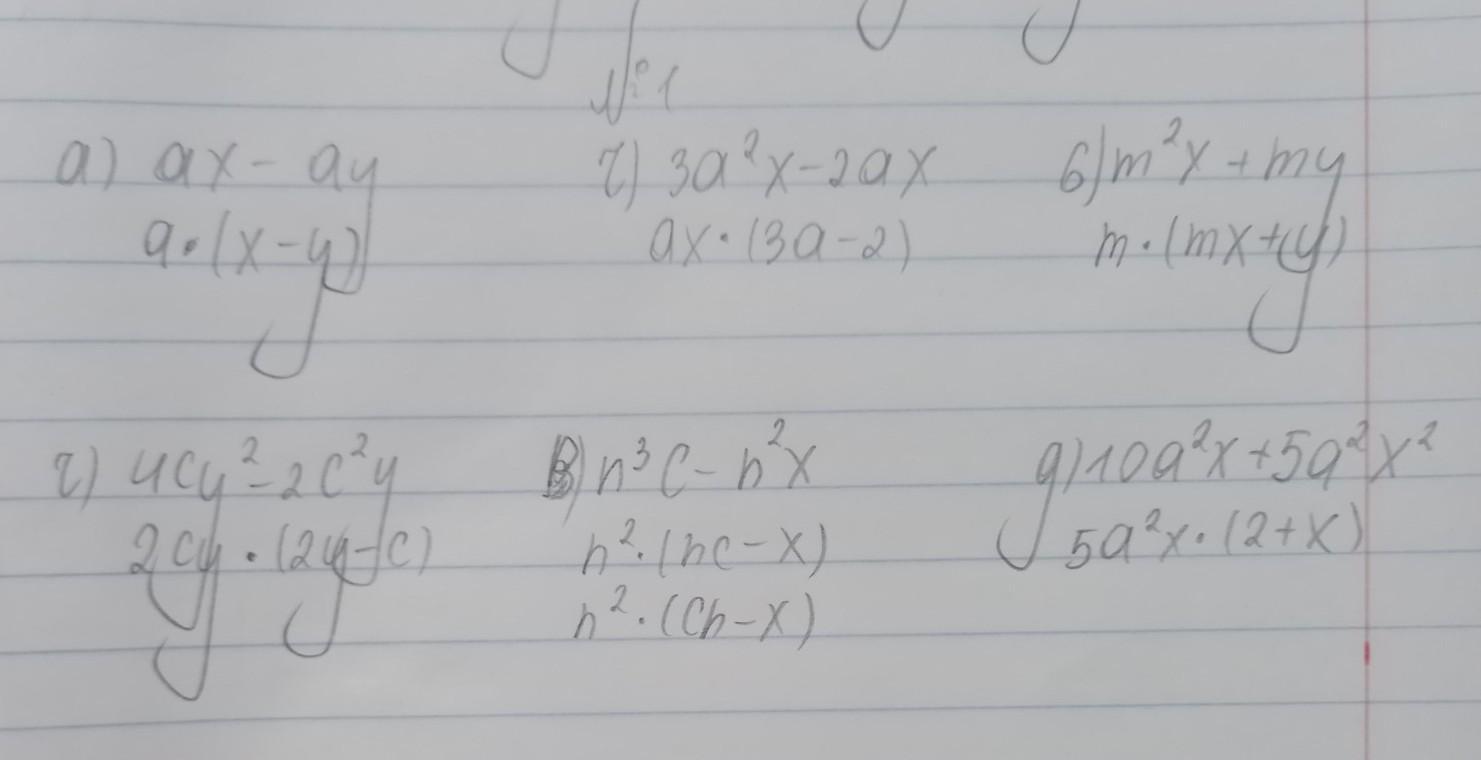 №1
а) ax - ay
a·(x-y)
г) 3a²x-2ax
ax·(3a-2)
б) m²x+my
m·(mx+y)
г) 4cy²-2c²y
2cy·(2y-c)
в) n³c-n²x
n²·(nc-x)
n²·(cn-x)
д) 10a²x+5a²x²
5a²x·(2+x)